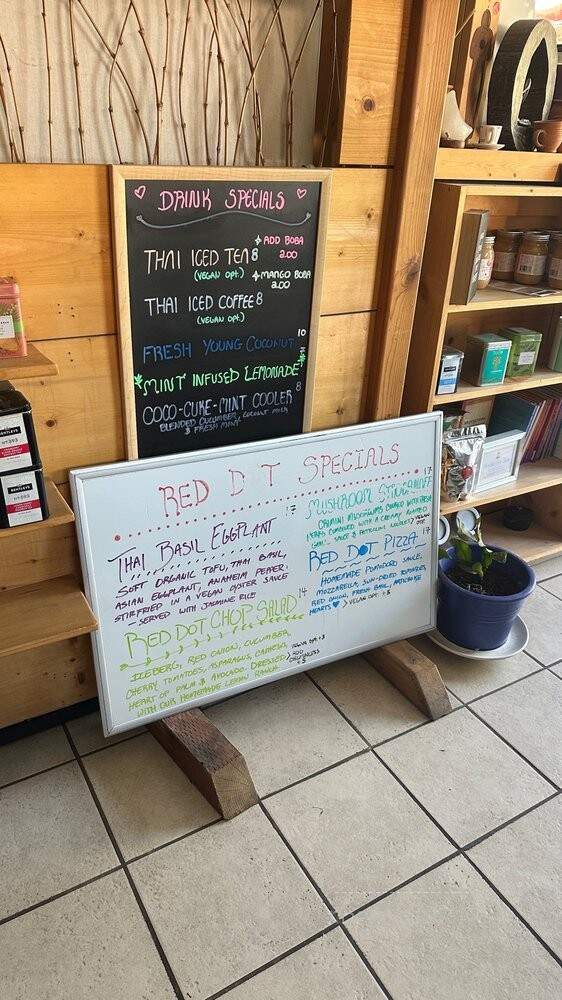 DRINK SPECIALS
THAI ICED TEA 8
+ ADD BOBA
2.00
(VEGAN OPT.)
+ MANGO BOBA
2.00
THAI ICED COFFEE 8
(VEGAN OPT.)
FRESH YOUNG COCONUT 10
MINT INFUSED LEMONADE
COCO-CUKE-MINT COOLER 8
BLENDED CUCUMBER, COCONUT MILK
& FRESH MINT
RED D T SPECIALS
THAI BASIL EGGPLANT 17
SOFT ORGANIC TOFU, THAI BASIL,
ASIAN EGGPLANT, ANAHEIM PEPPER,
STIRFRIED IN A VEGAN OYSTER SAUCE
- SERVED WITH JASMINE RICE
RED DOT CHOP SALAD 14
ICEBERG, RED ONION, CUCUMBER,
CHERRY TOMATOES, ASPARAGUS,
HEART OF PALM & AVOCADO. DRESSED
WITH OUR HOMEMADE LEMON RANCH
ADD
MUSHROOM 17
CRIMINI MUSHROOMS
WITH A CREAMY
SAUCE &
VEGAN
OPT
RED DOT PIZZA 17
HOMEMADE POMODORO SAUCE,
MOZZARELLA, SUN-DRIED TOMATOES,
RED ONION, FRESH BASIL, ARTICHOKE
HEARTS > VEGAN OPT +$
BENTLEYS
BENTLEYS